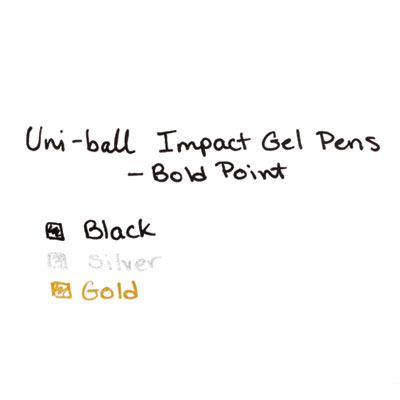 Uni-ball Impact Gel Pens
- Bold Point
Black
Silver
Gold